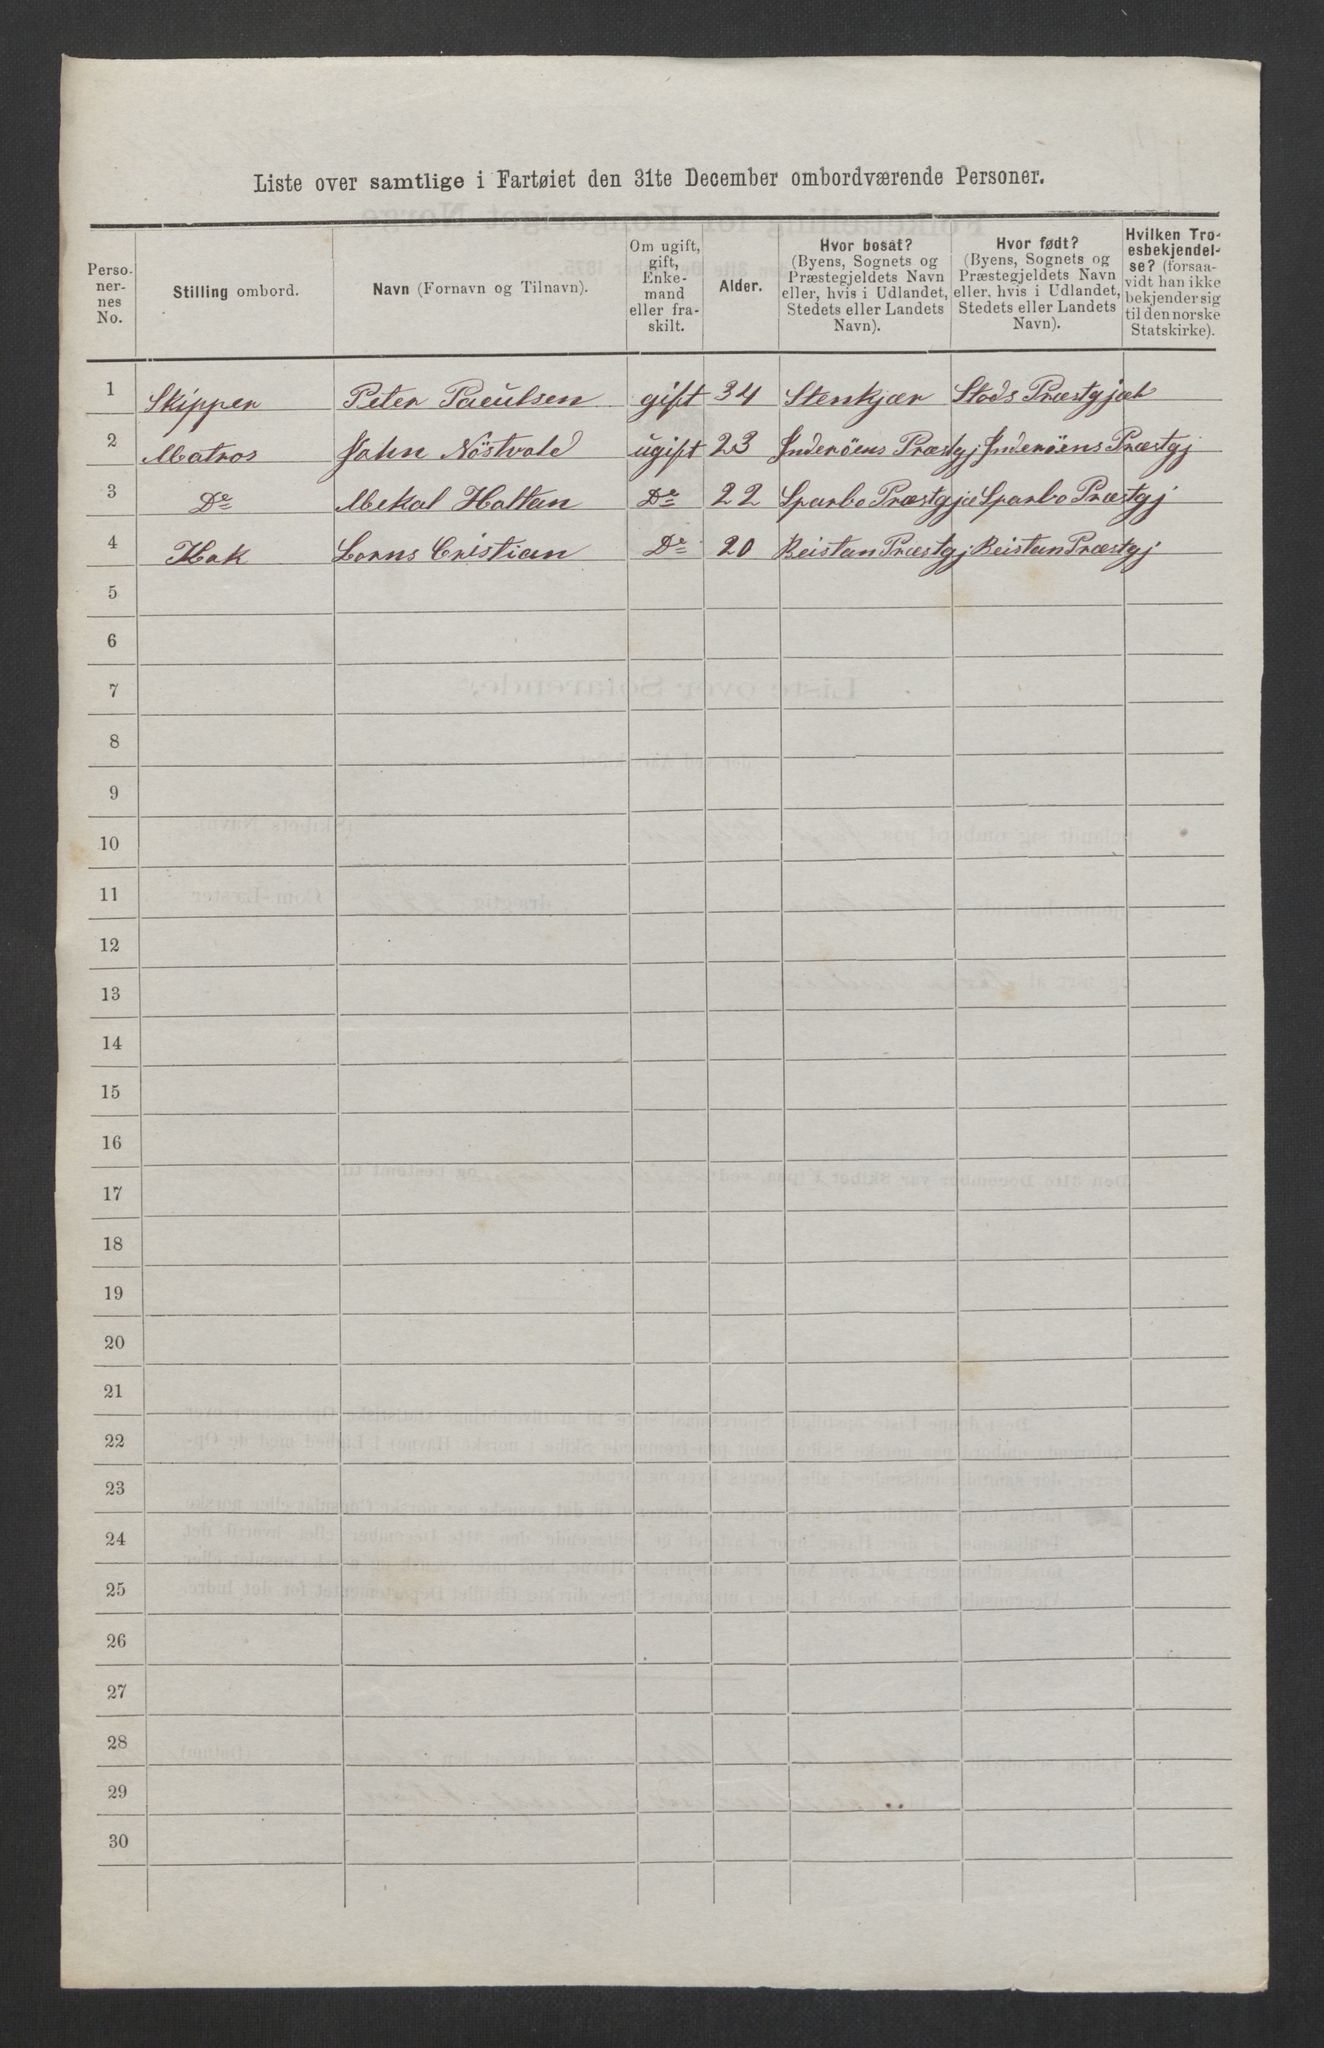 Liste over samtlige i Fartøiet den 31te December ombordværende Personer.
Perso-
ner-
nes
No.
Stilling ombord.
Navn (Fornavn og Tilnavn).
Om ugift,
gift,
Enke-
mand
eller fra-
skilt.
Alder.
Hvor bosat?
(Byens, Sognets og
Præstegjeldets Navn
eller, hvis i Udlandet,
Stedets eller Landets
Navn).
Hvor født?
(Byens, Sognets og
Præstegjeldets Navn
eller, hvis i Udlandet,
Stedets eller Landets
Navn).
Hvilken Tro-
esbekjendel-
se? (forsaa-
vidt han ikke
bekjender sig
til den norske
Statskirke).
1 Skipper Peter Paulsen gift 34 Stenkjær Stods Præstgjæl
2 Matros John Nöstvold ugift 23 Inderöens Præstgj Inderöens Præstgj
3 De Mekal Haltan De 22 Sparbo Præstgjæ Sparbo Præstgj
4 Kok Cristian De 20 Beistan Præstgj Beistan Præstgj
5
6
7
8
9
10
11
12
13
14
15
16
17
18
19
20
21
22
23
24
25
26
27
28
29
30